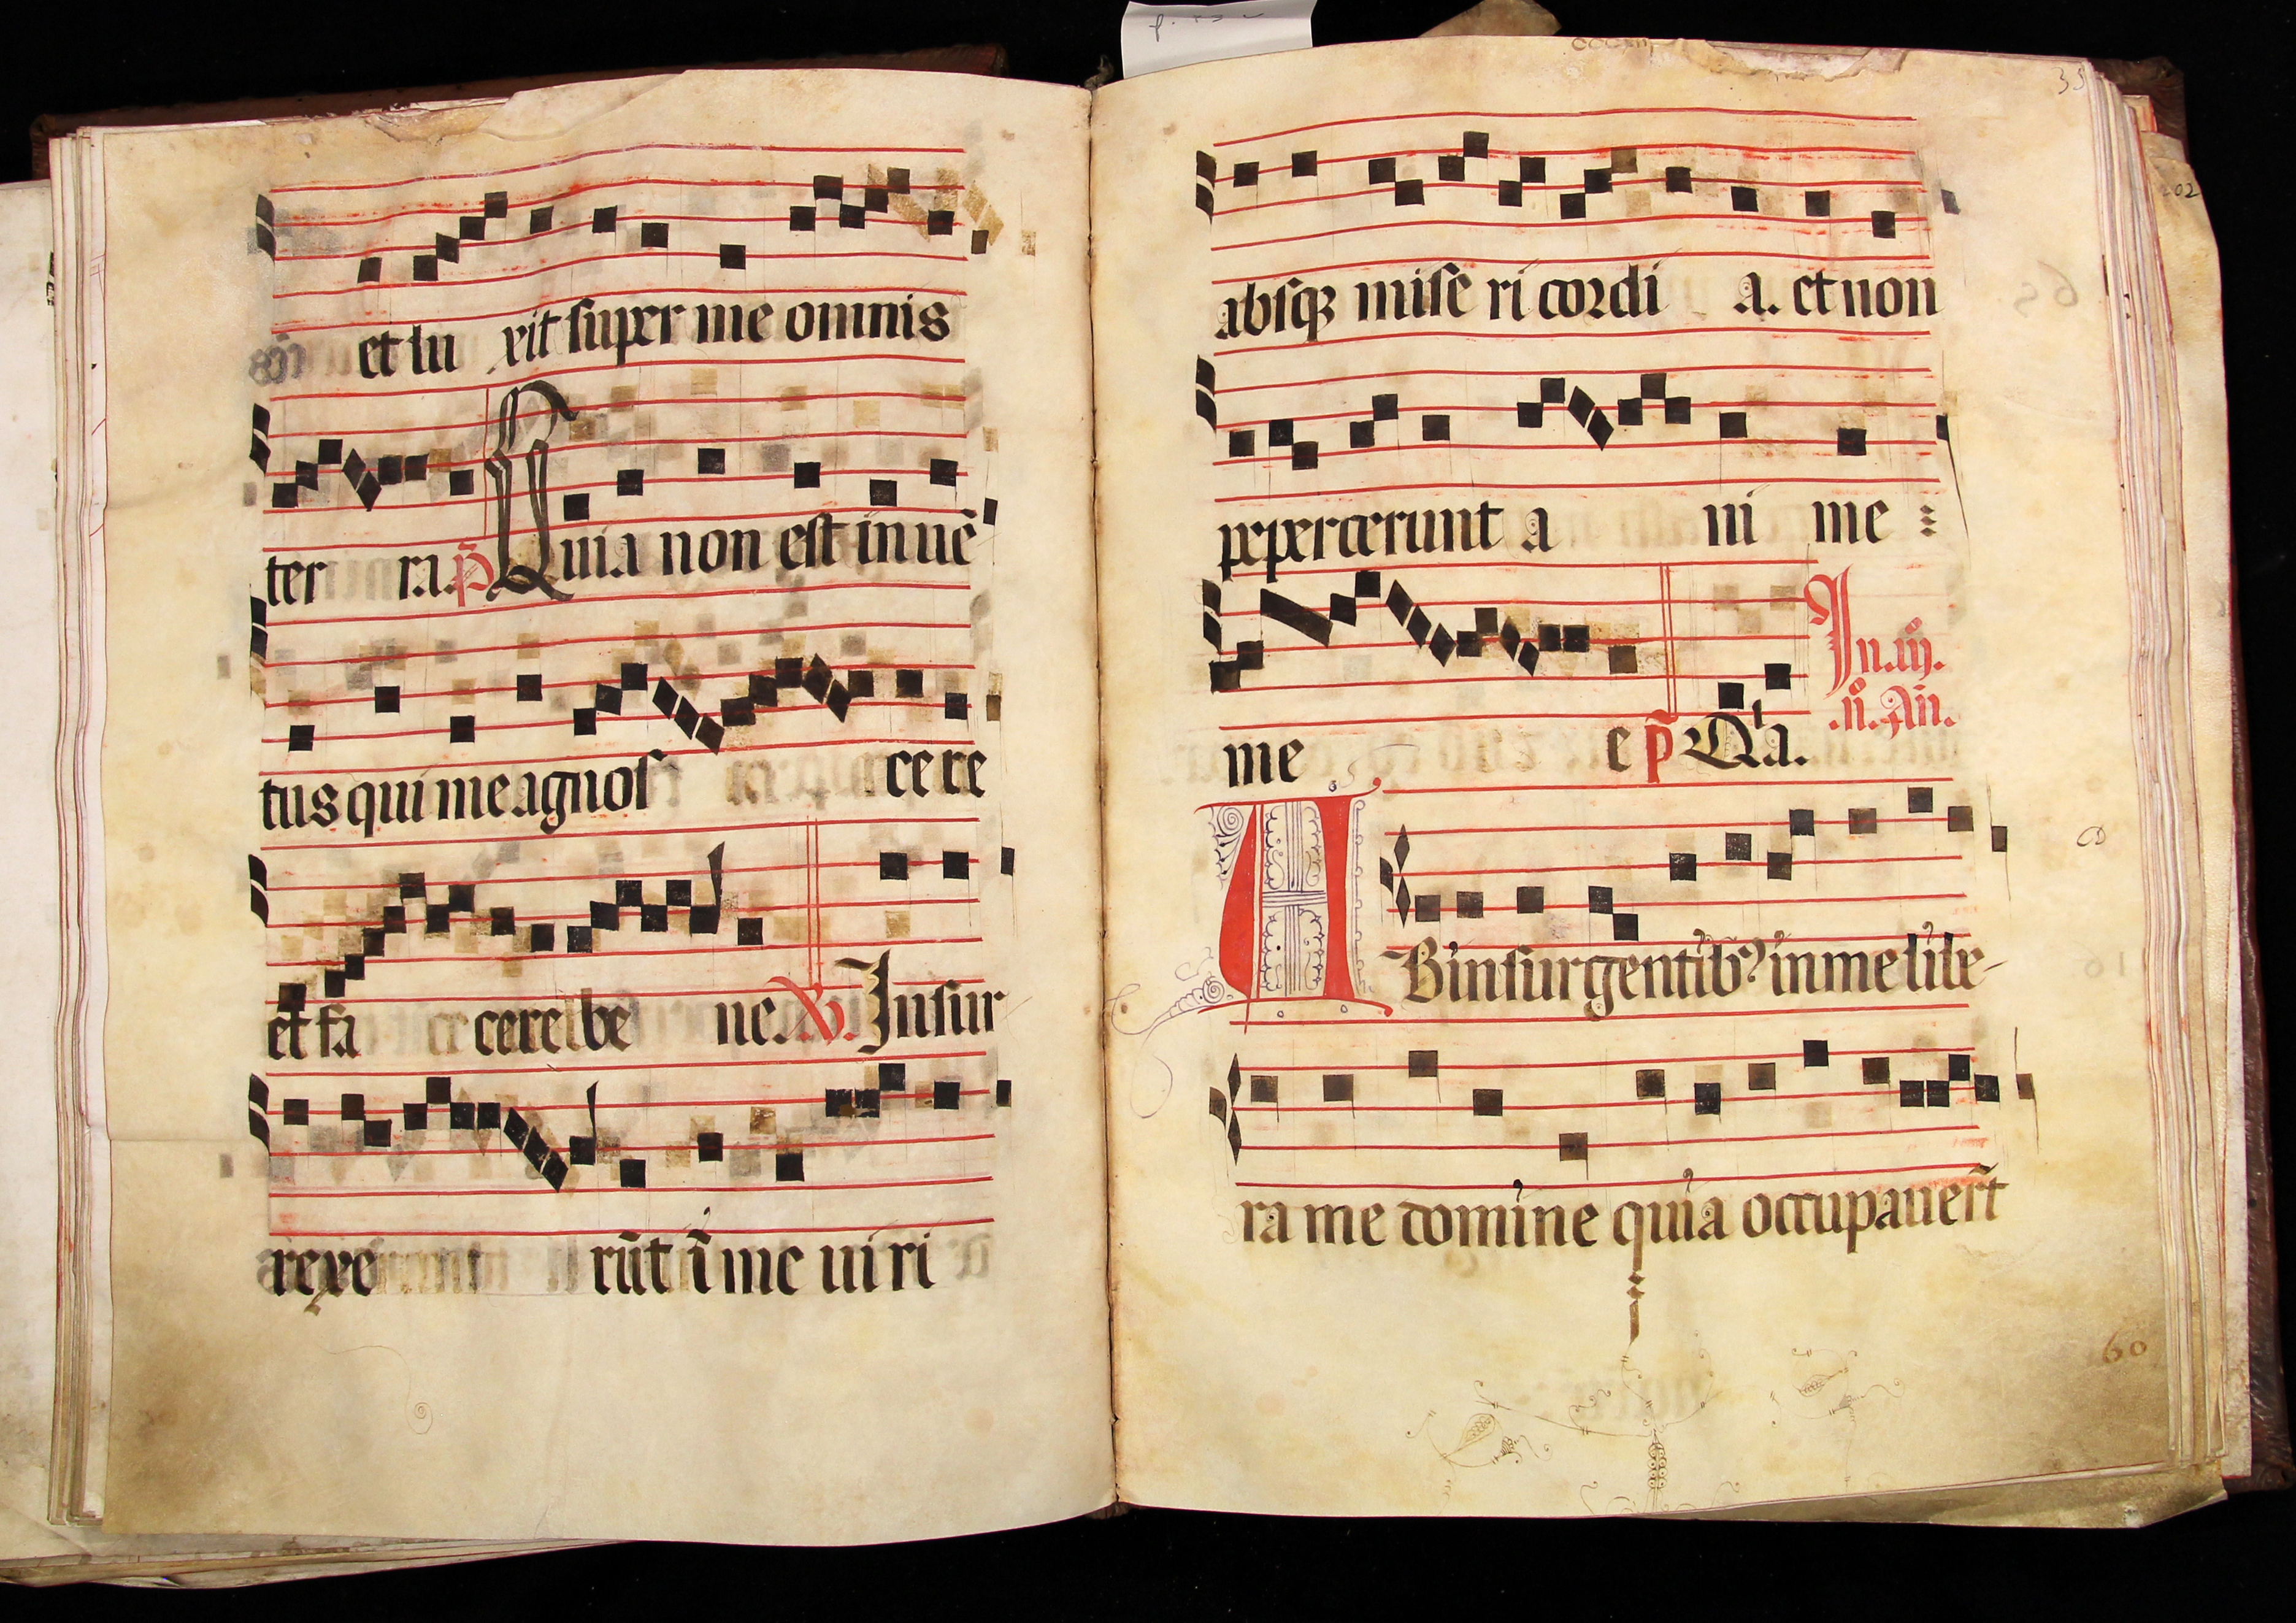 et lu xit super me omnis
ter ra. p̃ Quia non est inuē
tus qui me agnos ce re
et fa cere be ne. V. Insur
rexe rūt ī me ui ri
35
absqȝ mise ri cordi a. et non
pepercerunt a ni me
me e p̃ Qͥa. In. iij.
.n̊. Añ.
AB insurgentibꝰ in me libe-
ra me domine quia occupauer̄t
60